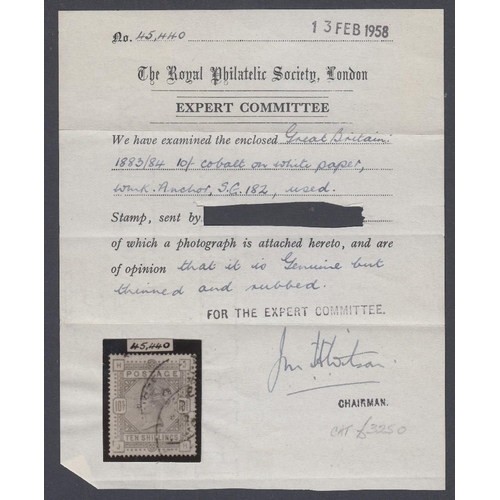 No. 45,440
13 FEB 1958
The Royal Philatelic Society, London
EXPERT COMMITTEE
We have examined the enclosed Great Britain:
1883/84 10/- cobalt on white paper,
wmk. Anchor, S.G. 182, used.
Stamp, sent by
of which a photograph is attached hereto, and are
of opinion that it is Genuine but
thinned and rubbed.
FOR THE EXPERT COMMITTEE.
CHAIRMAN.
CAT £3250
45,440
POSTAGE
TEN SHILLINGS